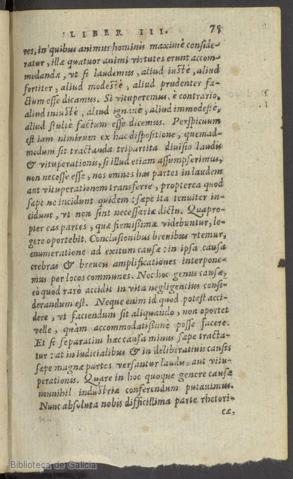 LIBER III. 78
res, in quibus animus hominis maximè conside-
ratur, illæ quatuor animi virtutes erunt accom-
modandæ, vt si laudemus, aliud iustè, aliud
fortiter, aliud modestè, aliud prudenter fa-
ctum esse dicamus. Si vituperemus, è contrario,
aliud iniustè, aliud ignauè, aliud immodestè,
aliud stultè factum esse dicemus. Perspicuum
est iam nimirum ex hac dispositione, quemad-
modum sit tractanda tripartita diuisio laudis
& vituperationis, si illud etiam assumpserimus,
non necesse esse, nos omnes has partes in laudem
aut vituperationem transferre, propterea quod
sæpe ne incidunt quidem: sæpe ita tenuiter in-
cidunt, vt non sint necessariæ dictu. Quapro-
pter eas partes, quæ firmissimæ videbuntur, le-
gere oportebit. Conclusionibus breuibus vtemur,
enumeratione ad exitum causæ: in ipsa causa
crebras & breueis amplificationes interpone-
mus per locos communes. Nec hoc genus causæ,
eò quod rarò accidit in vita negligentius consi-
derandum est. Neque enim id quod potest acci-
dere, vt faciendum sit aliquando, non oportet
velle, quàm accommodatissimè posse facere.
Et si separatim hæc causa minus sæpe tracta-
tur: at in iudicialibus & in deliberatiuis causis
sæpe magnæ partes versantur laudis, aut vitu-
perationis. Quare in hoc quoque genere causæ
nonnihil industriæ conferendum putauimus.
Nunc absoluta nobis difficillima parte rhetori-
cæ,
Biblioteca de Galicia